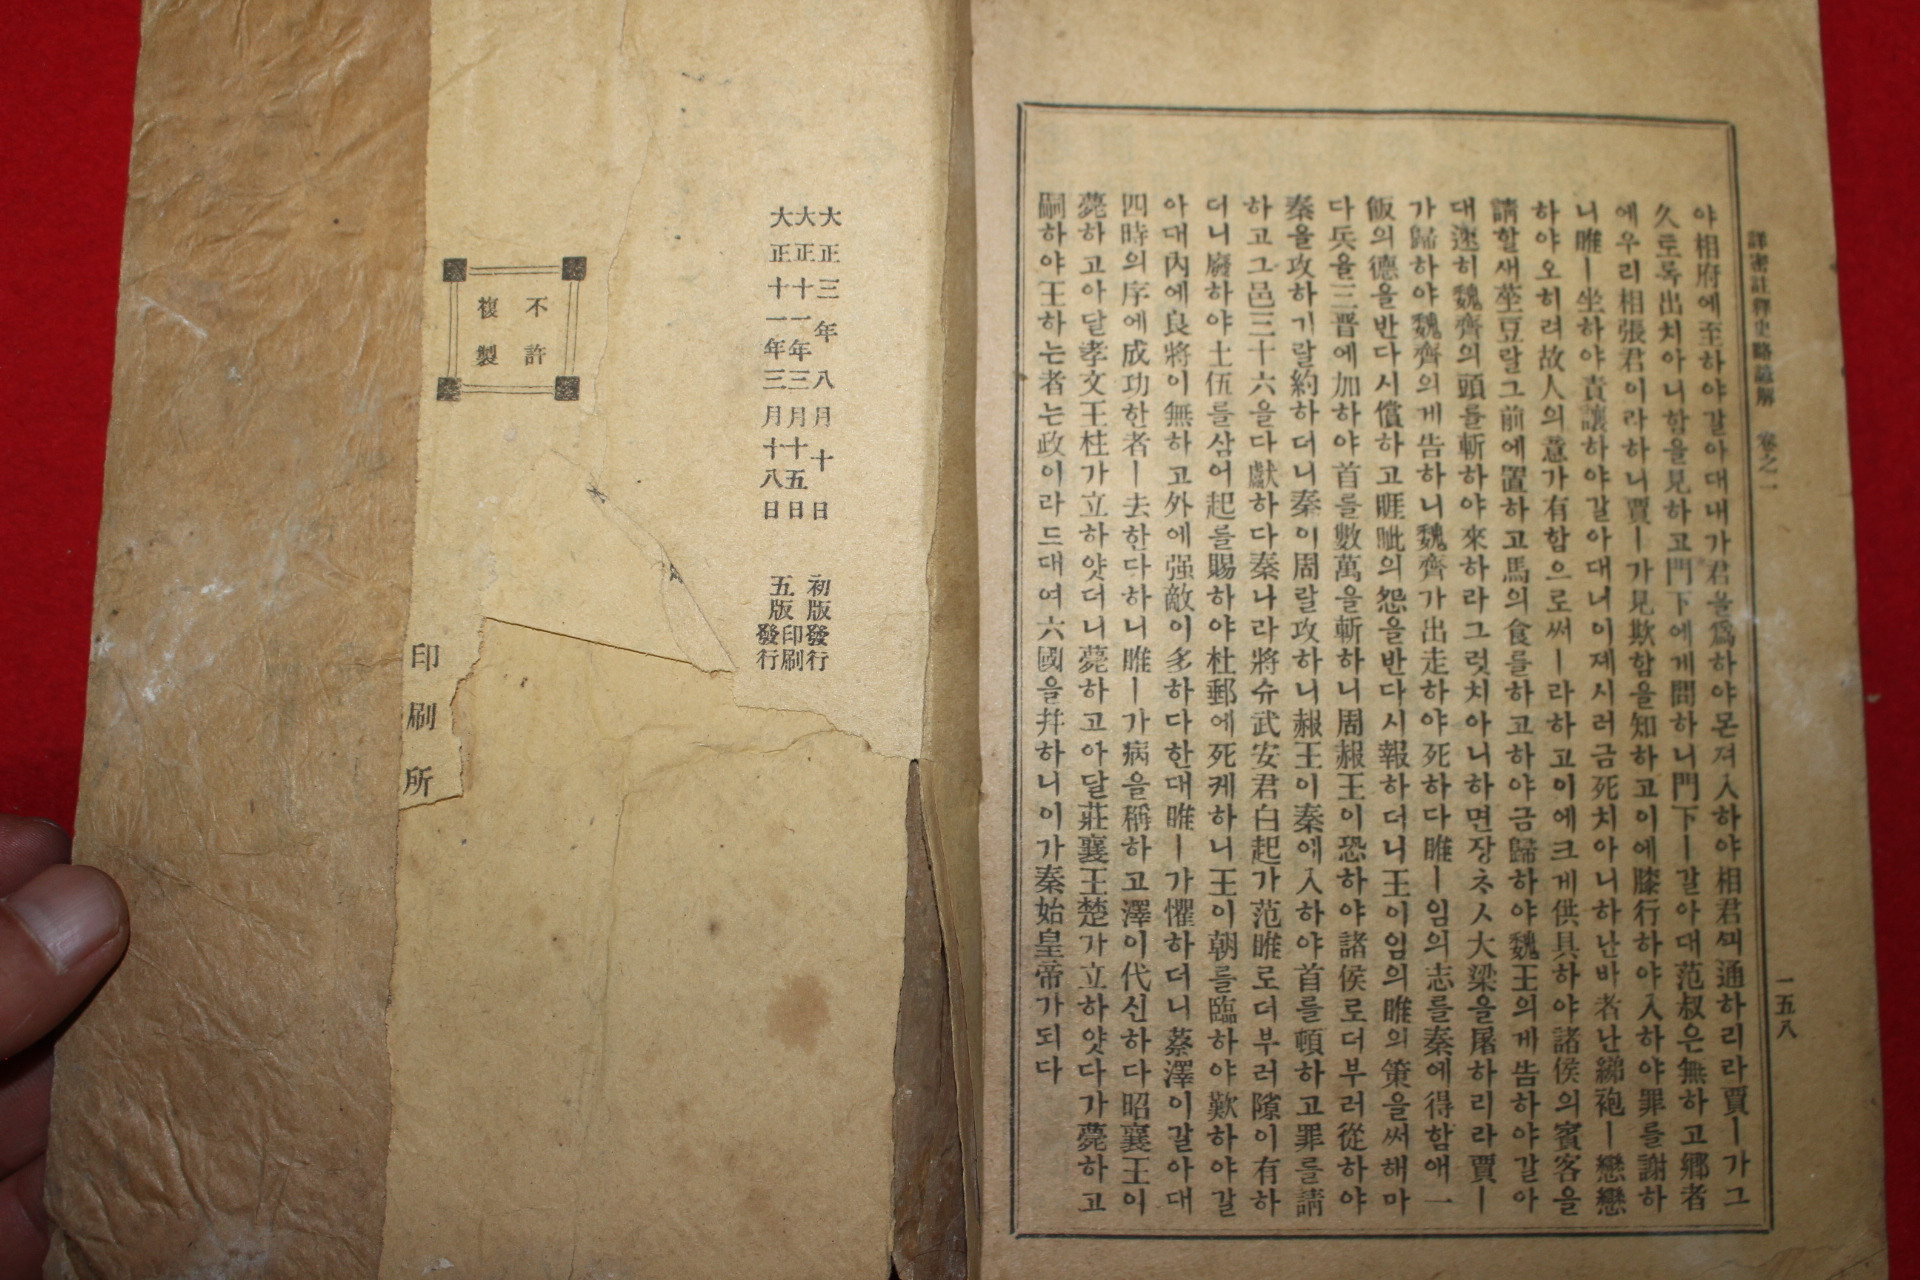 詳密註釋史略諺解 卷之一
一五八
야相府에至하야갈아대내가君을爲하야몬져入하야相君ᄭᅴ通하리라賈ㅣ가그
久로록出치아니함을見하고門下에게問하니門下ㅣ갈아대范叔은無하고鄕者
에우리相張君이라하니賈ㅣ가見欺함을知하고이에膝行하야入하야罪를謝하
니睢ㅣ坐하야責讓하야갈아대너이졔시러금死치아니하난바者난綈袍ㅣ戀戀
하야오히려故人의意가有함으로써ㅣ라하고이에크게供具하야諸侯의賓客을
請할새莝豆랄그前에置하고馬의食를하고하야금歸하야魏王의게告하야갈아
대速히魏齊의頭를斬하야來하라그럿치아니하면장ᄎᆞᆺ大梁을屠하리라賈ㅣ
가歸하야魏齊의게告하니魏齊가出走하야死하다睢ㅣ임의志를秦에得함애一
飯의德을반다시償하고睚眦의怨을반다시報하더니王이임의睢의策을써해마
다兵을三晋에加하야首를數萬을斬하니周赧王이恐하야諸侯로더부러從하야
秦을攻하기랄約하더니秦이周랄攻하니赧王이秦에入하야首를頓하고罪를請
하고그邑三十六을다獻하다秦나라將슈武安君白起가范睢로더부러隙이有하
더니廢하야士伍를삼어起를賜하야杜郵에死케하니王이朝를臨하야歎하야갈
아대內에良將이無하고外에强敵이多하다한대睢ㅣ가懼하더니蔡澤이갈아대
四時의序에成功한者ㅣ去한다하니睢ㅣ가病을稱하고澤이代신하다昭襄王이
薨하고아달孝文王柱가立하얏더니薨하고아달莊襄王楚가立하얏다가薨하고
嗣하야王하는者는政이라드대여六國을幷하니이가秦始皇帝가되다
大正三年八月十日 初版發行
大正十一年三月十五日 五版印刷
大正十一年三月十八日 發行
不許
複製
印刷所